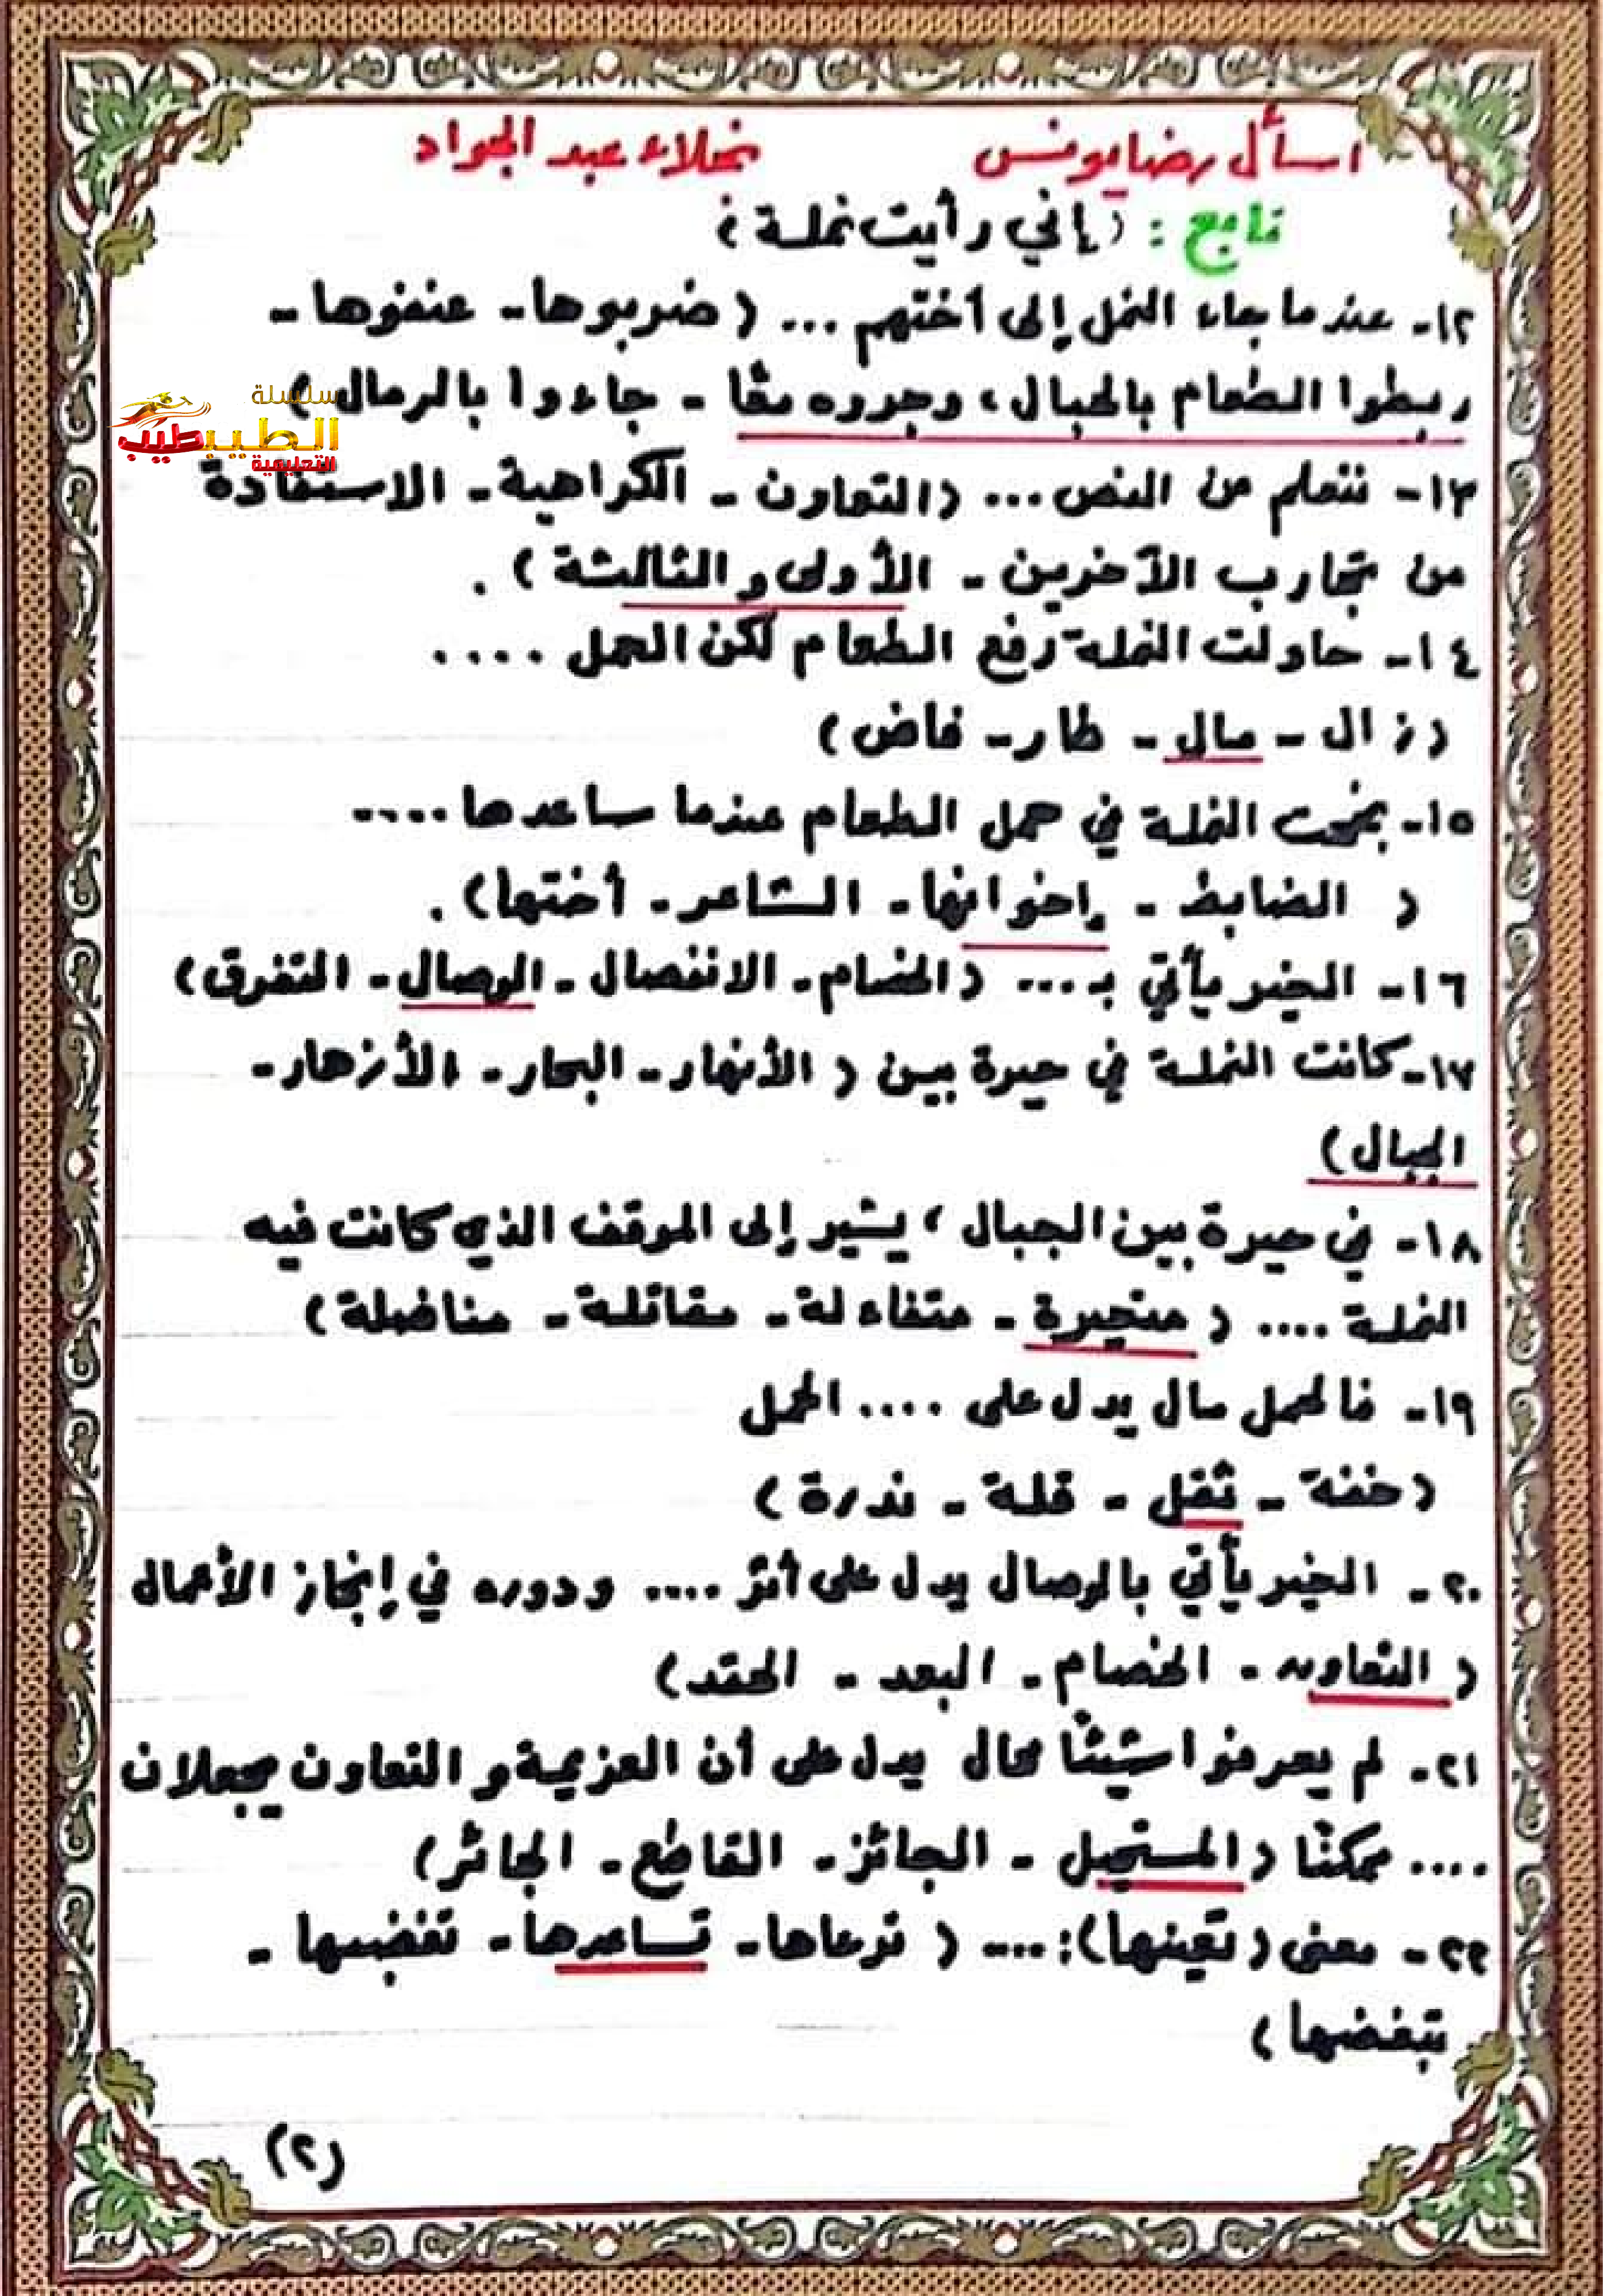 اسأل رضا يونس نجلاء عبد الجواد
تابع : (إني رأيت نملة)
١٢- عندما جاء النمل إلى أختهم ... (ضربوها - عنفوها -
ربطوا الطعام بالحبال، وجروه معًا - جاءوا بالرمال)
سلسلة
الطيب طيب
التعليمية
١٣- نتعلم من النص ... (التعاون - الكراهية - الاستفادة
من تجارب الآخرين - الأولى والثالثة) .
١٤- حاولت النملة رفع الطعام لكن الحمل ....
(زال - مال - طار - فاض)
١٥- نجحت النملة في حمل الطعام عندما ساعدها ....
( الضابط - إخوانها - الشاعر - أختها) .
١٦- الخير يأتي بـ ... (الخصام - الانفصال - الوصال - التفرق)
١٧- كانت النملة في حيرة بين (الأنهار - البحار - الأزهار -
الجبال)
١٨- في حيرة بين الجبال، يشير إلى الموقف الذي كانت فيه
النملة .... (متحيرة - متفاءلة - مقاتلة - مناضلة)
١٩- فالحمل مال يدل على .... الحمل
(خفة - ثقل - قلة - ندرة)
٢٠- الخير يأتي بالوصال يدل على أثر .... ودوره في إنجاز الأعمال
(التعاون - الخصام - البعد - الحقد)
٢١- لم يعرفوا شيئًا محال يدل على أن العزيمة والتعاون يجعلان
.... ممكنًا (المستحيل - الجائز - القاطع - الجائر)
٢٢- معنى (تعينها): .... (ترعاها - تساعدها - تغضبها -
تبغضها)
(٢)